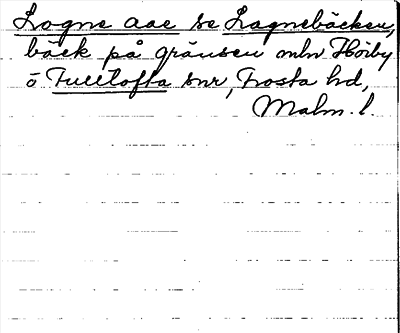 Logne aae se Lagnebäcken,
bäck på gränsen mln Höiby
o Fulltofta snr, Frosta hd,
Malm. l.